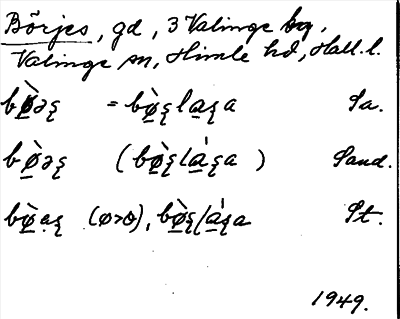 Börjes, gd, 3 Valinge by,
Valinge sn, Himle hd, Hall. l.
bø̀əʂ = bø̀ʂlaʂa Sa.
bø̀əʂ (bø̀ʂláʂa) Sand.
bø̀aʂ (ø>ö), bø̀ʂláʂa St.
1949.